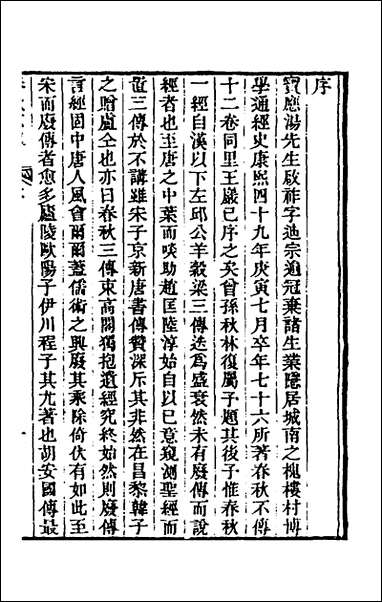 序
寶應湯先生啟祚字迪宗逾冠棄諸生業隱居城南之槐樓村博
學通經史康熙四十九年庚寅七月卒年七十六所著春秋不傳
十二卷同里王巖已序之矣曾孫秋林復屬予題其後予惟春秋
一經自漢以下左邱公羊穀梁三傳迭爲盛衰然未有廢傳而說
經者也至唐之中葉而啖助趙匡陸淳始自以已意窺測聖經而
置三傳於不講雖宋子京新唐書傳贊深斥其非然在昌黎韓子
之贈盧仝也亦曰春秋三傳束高閣獨抱遺經究終始然則廢傳
言經固中唐人風會爾爾蓋儒術之興廢其乘除倚伏有如此至
宋而廢傳者愈多廬陵歐陽子伊川程子其尤著也胡安國傳最